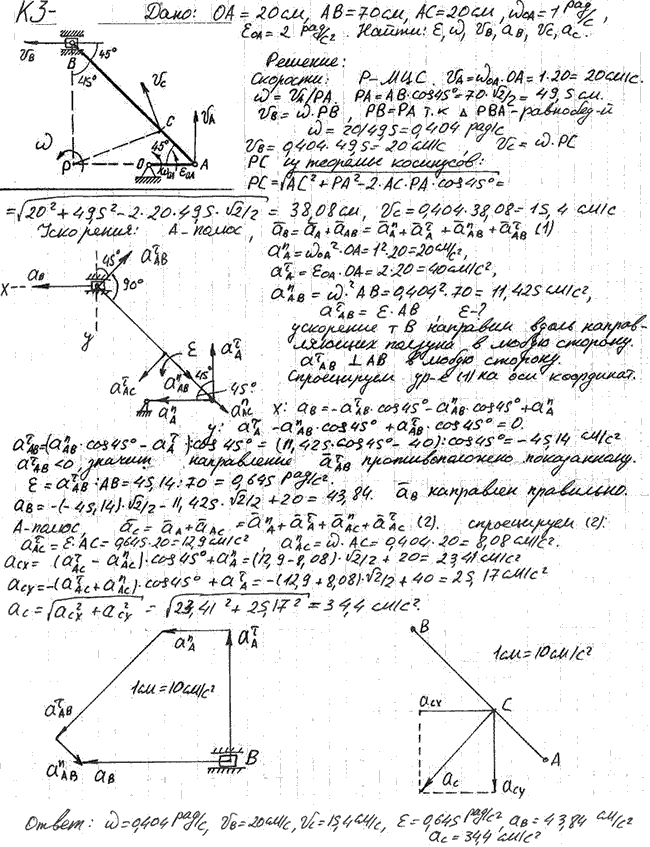 К3-
Дано: OA = 20 см, AB = 70 см, AC = 20 см, ω_OA = 1 рад/с,
ε_OA = 2 рад/с². Найти: ε, ω, v_B, a_B, v_C, a_C.
Решение:
Скорости: P-МЦС. v_A = ω_OA·OA = 1·20 = 20 см/с.
ω = v_A/PA. PA = AB·cos45° = 70·√2/2 = 49,5 см.
v_B = ω·PB, PB = PA т.к Δ PBA - равнобед-й
ω = 20/49,5 = 0,404 рад/с
v_B = 0,404·49,5 = 20 см/с v_C = ω·PC
PC из теоремы косинусов:
PC = √AC² + PA² - 2·AC·PA·cos45° =
= √20² + 49,5² - 2·20·49,5·√2/2 = 38,08 см, v_C = 0,404·38,08 = 15,4 см/с
Ускорения: A-полюс, a̅_B = a̅_A + a̅_AB = a̅ⁿ_A + a̅^τ_A + a̅ⁿ_AB + a̅^τ_AB (1)
aⁿ_A = ω_OA²·OA = 1²·20 = 20 см/с²,
a^τ_A = ε_OA·OA = 2·20 = 40 см/с²,
aⁿ_AB = ω²·AB = 0,404²·70 = 11,425 см/с²,
a^τ_AB = ε·AB, ε-?
ускорение т В направим вдоль направ-
ляющих ползуна в любую сторону.
a^τ_AB ⊥ AB в любую сторону.
Спроецируем ур-е (1) на оси координат.
x: a_B = -a^τ_AB·cos45° - aⁿ_AB·cos45° + aⁿ_A
y: a^τ_A - aⁿ_AB·cos45° + a^τ_AB·cos45° = 0.
a^τ_AB = (aⁿ_AB·cos45° - a^τ_A):cos45° = (11,425·cos45° - 40):cos45° = -45,14 см/с²
a^τ_AB < 0, значит направление a̅^τ_AB противоположно показанному.
ε = a^τ_AB:AB = 45,14:70 = 0,645 рад/с².
a_B = -(-45,14)·√2/2 - 11,425·√2/2 + 20 = 43,84. a̅_B направлен правильно.
A-полюс a̅_C = a̅_A + a̅_AC = a̅ⁿ_A + a̅^τ_A + a̅ⁿ_AC + a̅^τ_AC (2). спроецируем (2):
a^τ_AC = ε·AC = 0,645·20 = 12,9 см/с² aⁿ_AC = ω·AC = 0,404·20 = 8,08 см/с².
a_CX = (a^τ_AC - aⁿ_AC)·cos45° + aⁿ_A = (12,9 - 8,08)·√2/2 + 20 = 23,41 см/с²
a_CY = -(a^τ_AC + aⁿ_AC)·cos45° + a^τ_A = -(12,9 + 8,08)·√2/2 + 40 = 25,17 см/с²
a_C = √a_CX² + a_CY² = √23,41² + 25,17² = 34,4 см/с².
v_B
B
45°
45°
v_C
C
v_A
ω
P
O
45°
ω_OA
ε_OA
A
45°
a^τ_AB
x
a_B
90°
y
ε
a^τ_AC
aⁿ_AB
45°
a^τ_A
45°
aⁿ_A
aⁿ_AC
aⁿ_A
a^τ_A
1см = 10см/с²
a^τ_AB
aⁿ_AB
a_B
B
B
1см = 10см/с²
a_CX
C
A
a_C
a_CY
Ответ: ω = 0,404 рад/с, v_B = 20 см/с, v_C = 15,4 см/с, ε = 0,645 рад/с², a_B = 43,84 см/с²
a_C = 34,4 см/с²